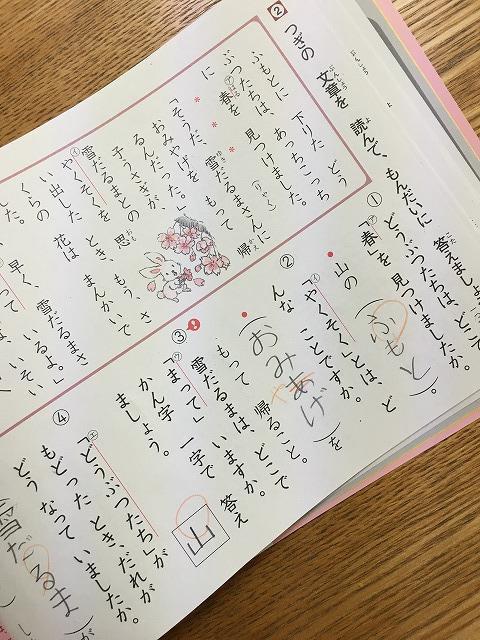 2 つぎの 文章を 読んで、もんだいに 答えましょう。
ふもとに 下りた どう
ぶつたちは、あっちこっち
に ㋐春を 見つけました。
(りゃく)
「そうだ、雪だるまさんに
おみやげを もって 帰
るんだった。」
子うさぎが、
雪だるまとの
㋑やくそくを 思
い出した とき、もう、さ
くらの 花は まんかいで
した。
早く、雪だるまさ
① ㋐「春」を どうぶつたちは、どこで
見つけましたか。
山の（ふもと）。
② ㋑「やくそく」とは、ど
んな ことですか。
（おみあげ）を
や
もって 帰ること。
③ ㋒「まって」
雪だるまは、どこで
いますか。
かん字 一字で 答え
ましょう。
山
④ ㋓「どうぶつたち」が
もどった とき、だれが
どう なって いましたか。
雪だるま